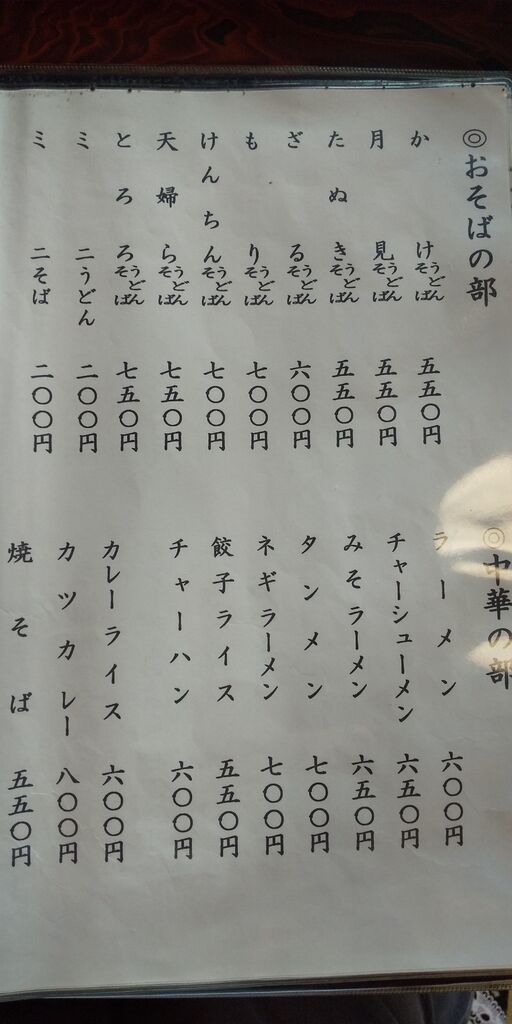 ◎おそばの部
かけそばうどん 五五〇円
月見そばうどん 五五〇円
たぬきそばうどん 五五〇円
ざるそばうどん 六〇〇円
もりそばうどん 七〇〇円
けんちんそばうどん 七〇〇円
天婦らそばうどん 七五〇円
とろろそばうどん 七五〇円
ミニうどん 二〇〇円
ミニそば 二〇〇円
◎中華の部
ラーメン 六〇〇円
チャーシューメン 六五〇円
みそラーメン 六五〇円
タンメン 七〇〇円
ネギラーメン 七〇〇円
餃子ライス 五五〇円
チャーハン 六〇〇円
カレーライス 六〇〇円
カツカレー 八〇〇円
焼そば 五五〇円